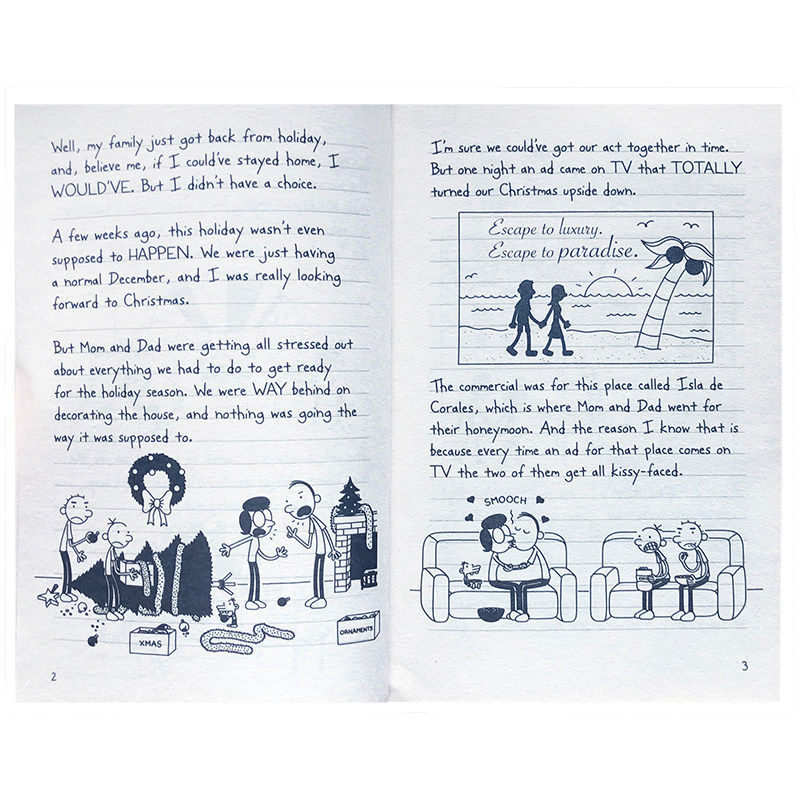 Well, my family just got back from holiday,
and, believe me, if I could've stayed home, I
WOULD'VE. But I didn't have a choice.
A few weeks ago, this holiday wasn't even
supposed to HAPPEN. We were just having
a normal December, and I was really looking
forward to Christmas.
But Mom and Dad were getting all stressed out
about everything we had to do to get ready
for the holiday season. We were WAY behind on
decorating the house, and nothing was going the
way it was supposed to.
XMAS
ORNAMENTS
2
I'm sure we could've got our act together in time.
But one night an ad came on TV that TOTALLY
turned our Christmas upside down.
Escape to luxury.
Escape to paradise.
The commercial was for this place called Isla de
Corales, which is where Mom and Dad went for
their honeymoon. And the reason I know that is
because every time an ad for that place comes on
TV the two of them get all kissy-faced.
SMOOCH
3